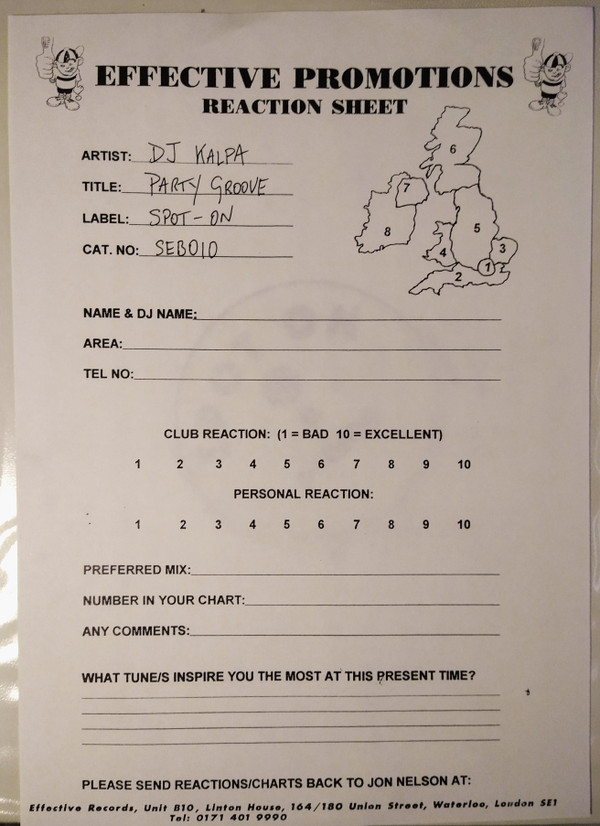 EFFECTIVE PROMOTIONS
REACTION SHEET
ARTIST: DJ KALPA
TITLE: PARTY GROOVE
LABEL: SPOT-ON
CAT. NO: SEB010
6
7
5
8
3
4
1
2
NAME & DJ NAME:
AREA:
TEL NO:
CLUB REACTION: (1 = BAD 10 = EXCELLENT)
1 2 3 4 5 6 7 8 9 10
PERSONAL REACTION:
1 2 3 4 5 6 7 8 9 10
PREFERRED MIX:
NUMBER IN YOUR CHART:
ANY COMMENTS:
WHAT TUNE/S INSPIRE YOU THE MOST AT THIS PRESENT TIME?
PLEASE SEND REACTIONS/CHARTS BACK TO JON NELSON AT:
Effective Records, Unit B10, Linton House, 164/180 Union Street, Waterloo, London SE1
Tel: 0171 401 9990